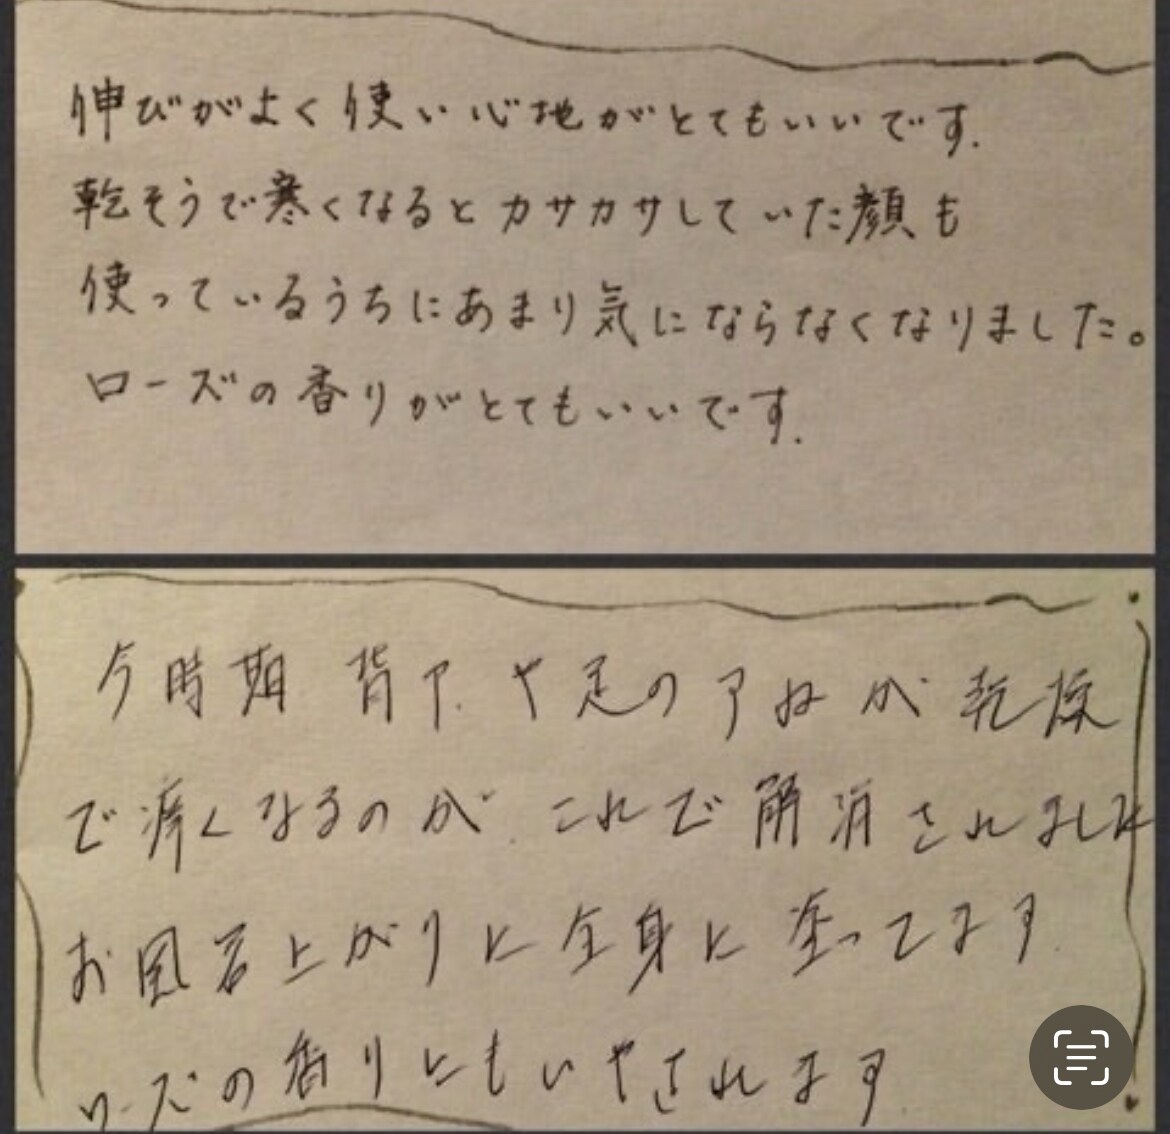 伸びがよく使い心地がとてもいいです.
乾そうで寒くなるとカサカサしていた顔も
使っているうちにあまり気にならなくなりました。
ローズの香りがとてもいいです.
今時期 背中や足のアねが乾燥
で痒くなるのが これで解消されました
お風呂上がりに全身に塗ってます
ローズの香りにもいやされます